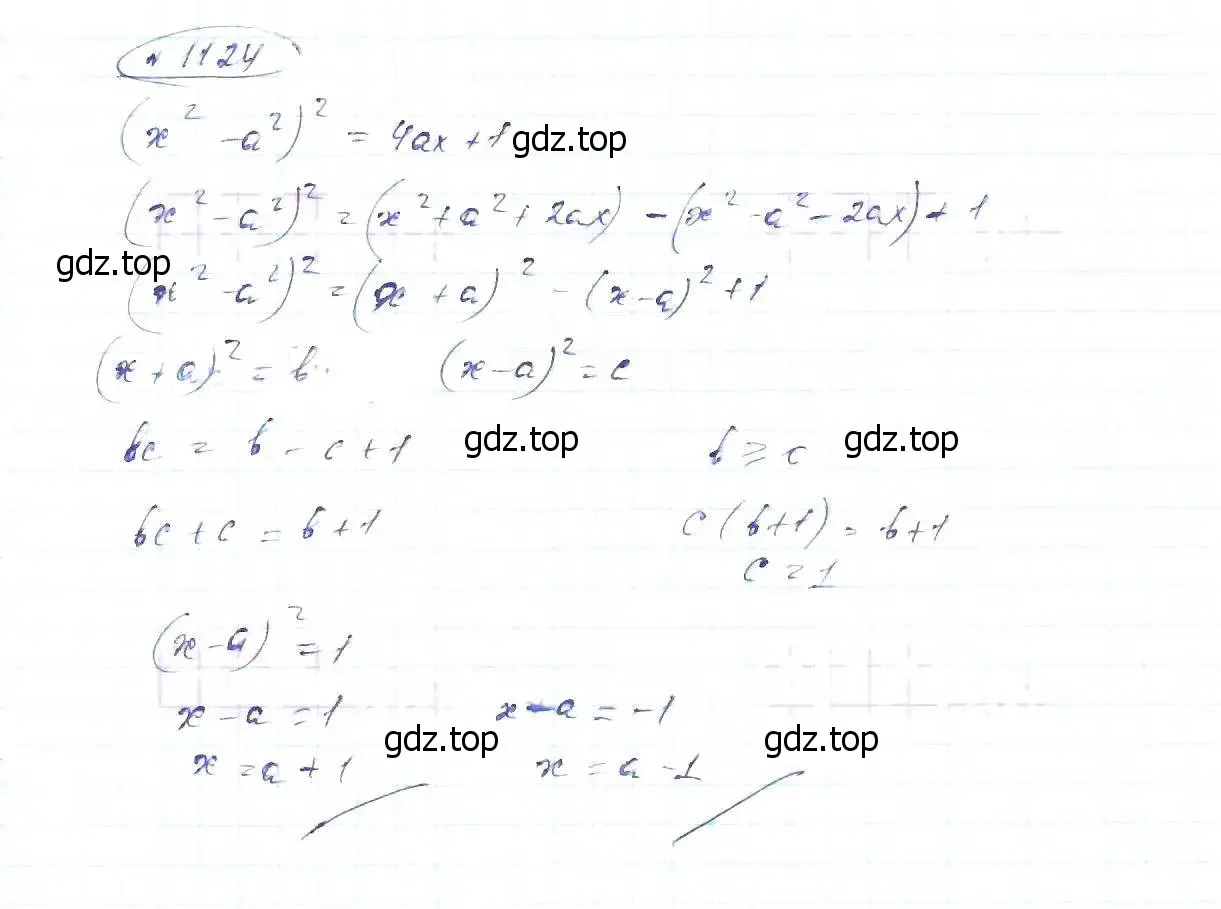 № 1124
(x² - a²)² = 4ax + 1 gdz.top
(x² - a²)² = (x² + a² + 2ax) - (x² - a² - 2ax) + 1
gdz.top
(x² - a²)² = (x + a)² - (x - a)² + 1
(x + a)² = b. (x - a)² = c
bc = b - c + 1 gdz.top b ≥ c gdz.top
bc + c = b + 1 c (b + 1) = b + 1
c = 1
(x - a)² = 1
x - a = 1 x - a = -1
gdz.top gdz.top
x = a + 1 x = a - 1